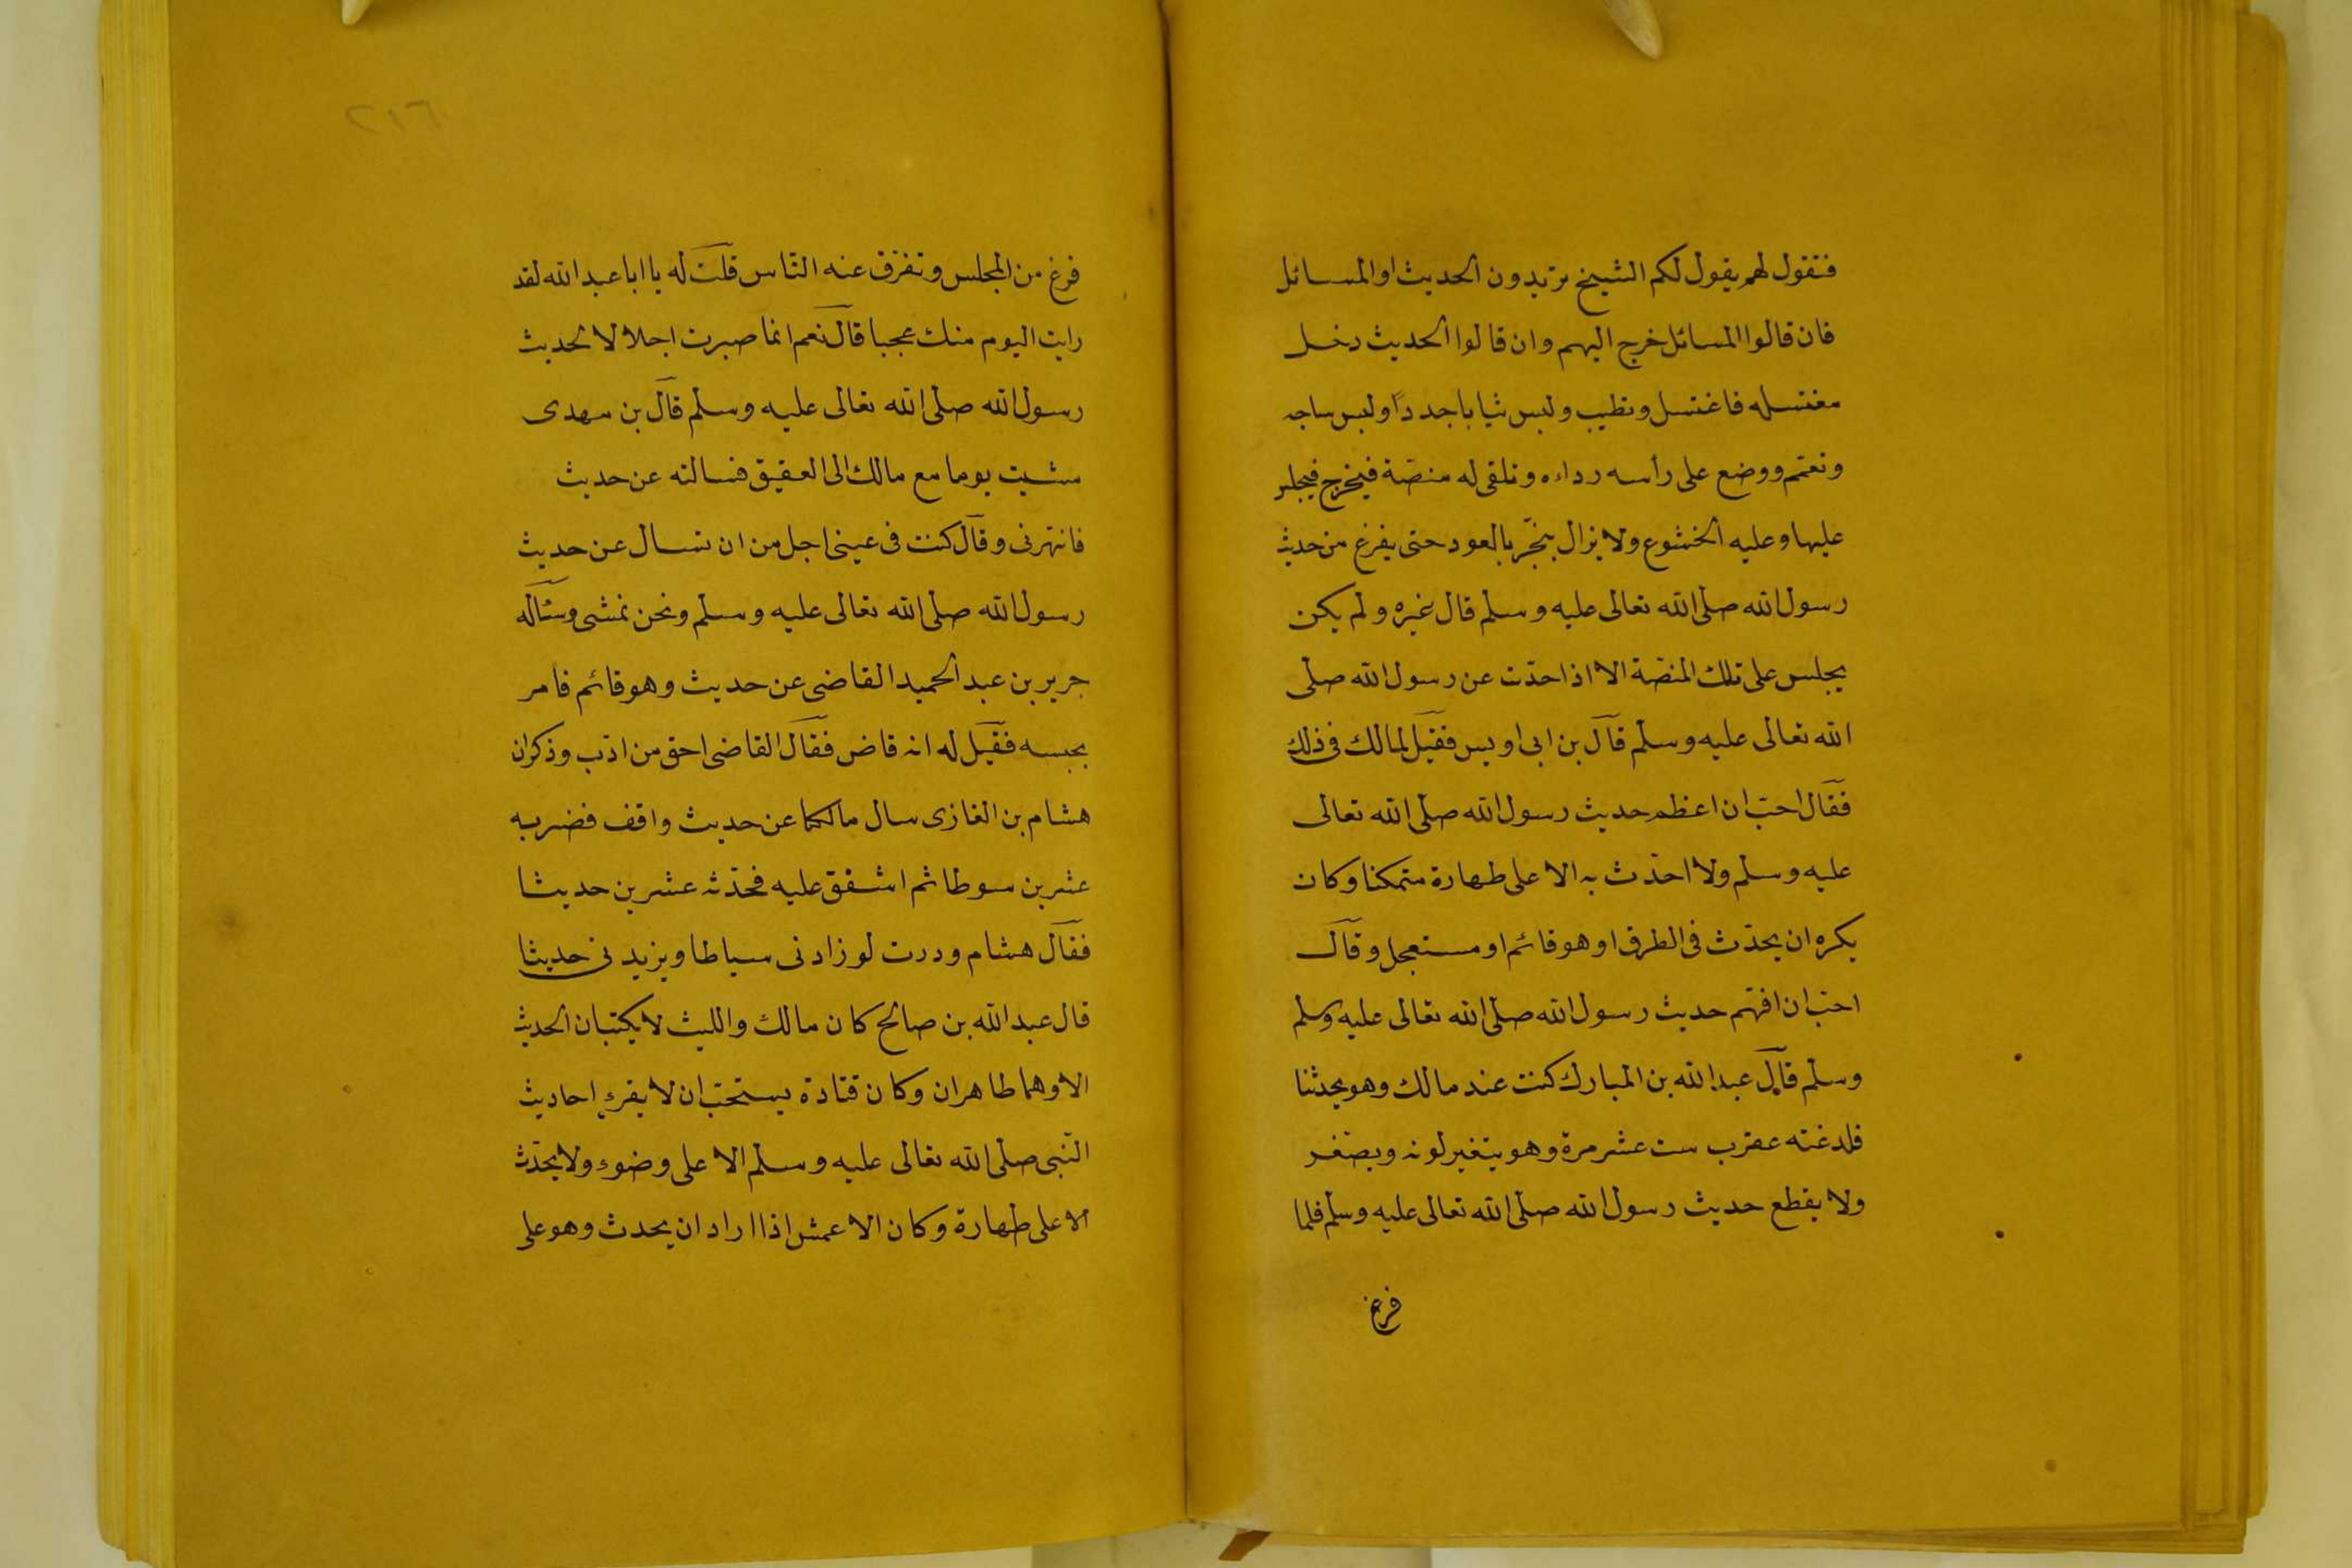 فتقول لهم يقول لكم الشيخ تريدون الحديث او المسائل
فان قالوا المسائل خرج اليهم وان قالوا الحديث دخل
مغتسله فاغتسل وتطيب ولبس ثيابا جددًا ولبس ساجه
وتعمم ووضع على رأسه رداءه وتلقى له منصّة فيخرج فيجلس
عليها وعليه الخشوع ولا يزال يبخّر بالعود حتى يفرغ من حديث
رسول الله صلّى الله تعالى عليه وسلم قال غيره ولم يكن
يجلس على تلك المنصّة الا اذا حدّث عن رسول الله صلّى
الله تعالى عليه وسلم قال بن ابى اويس فقيل لمالك فى ذلك
فقال احبّ ان اعظم حديث رسول الله صلّى الله تعالى
عليه وسلّم ولا احدّث به الا على طهارة متمكنا وكان
يكره ان يحدّث فى الطرق او هو قائم او مستعجل وقال
احبّ ان افهّم حديث رسول الله صلّى الله تعالى عليه وسلم
وسلّم قال عبد الله بن المبارك كنت عند مالك وهو يحدثنا
فلدغته عقرب ست عشر مرة وهو يتغير لونه ويصفر
ولا يقطع حديث رسول الله صلّى الله تعالى عليه وسلّم فلما
فرغ
٢١٦
فرغ من المجلس وتفرّق عنه النّاس قلت له يا ابا عبد الله لقد
رايت اليوم منك عجبا قال نعم انما صبرت اجلالا لحديث
رسول الله صلّى الله تعالى عليه وسلّم قال بن مهدى
مشيت يوما مع مالك الى العقيق فسالته عن حديث
فانتهرنى وقال كنت فى عينى اجل من ان تسال عن حديث
رسول الله صلّى الله تعالى عليه وسلّم ونحن نمشى وسئاله
جرير بن عبد الحميد القاضى عن حديث وهو قائم فامر
بحبسه فقيل له انه قاض فقال القاضى احق من ادّب وذكر ان
هشام بن الغازى سال مالكا عن حديث واقف فضربه
عشرين سوطا ثم اشفق عليه فحدّثه عشرين حديثا
فقال هشام وددت لو زادنى سياطا ويزيدنى حديثا
قال عبد الله بن صالح كان مالك والليث لا يكتبان الحديث
الا وهما طاهران وكان قتادة يستحبّ ان لا يقرء احاديث
النّبى صلّى الله تعالى عليه وسلّم الا على وضوء ولا يحدّث
الا على طهارة وكان الاعمش اذا اراد ان يحدث وهو على